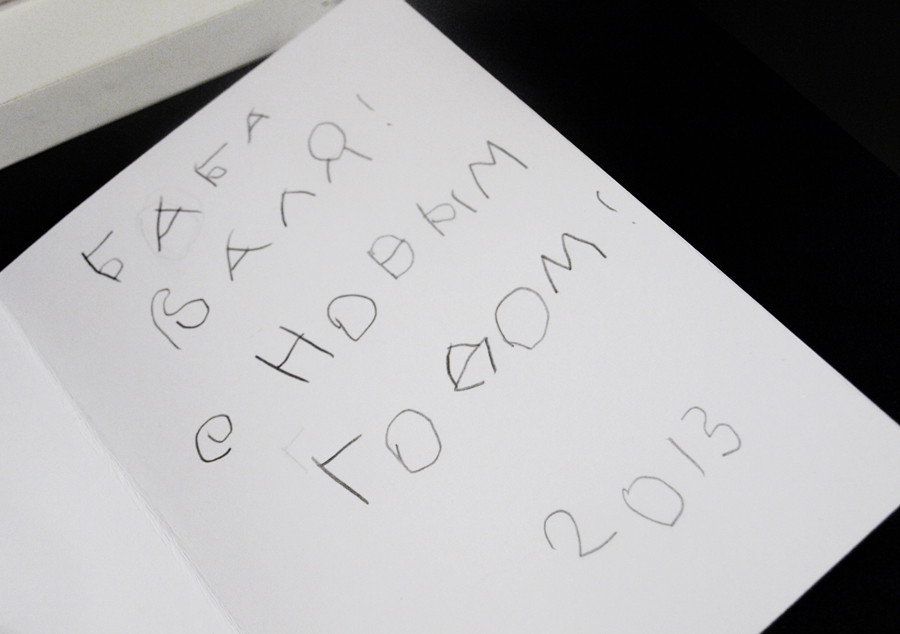 БАБА
ВАЛЯ!
С НОВЫМ
ГОДОМ!
2013